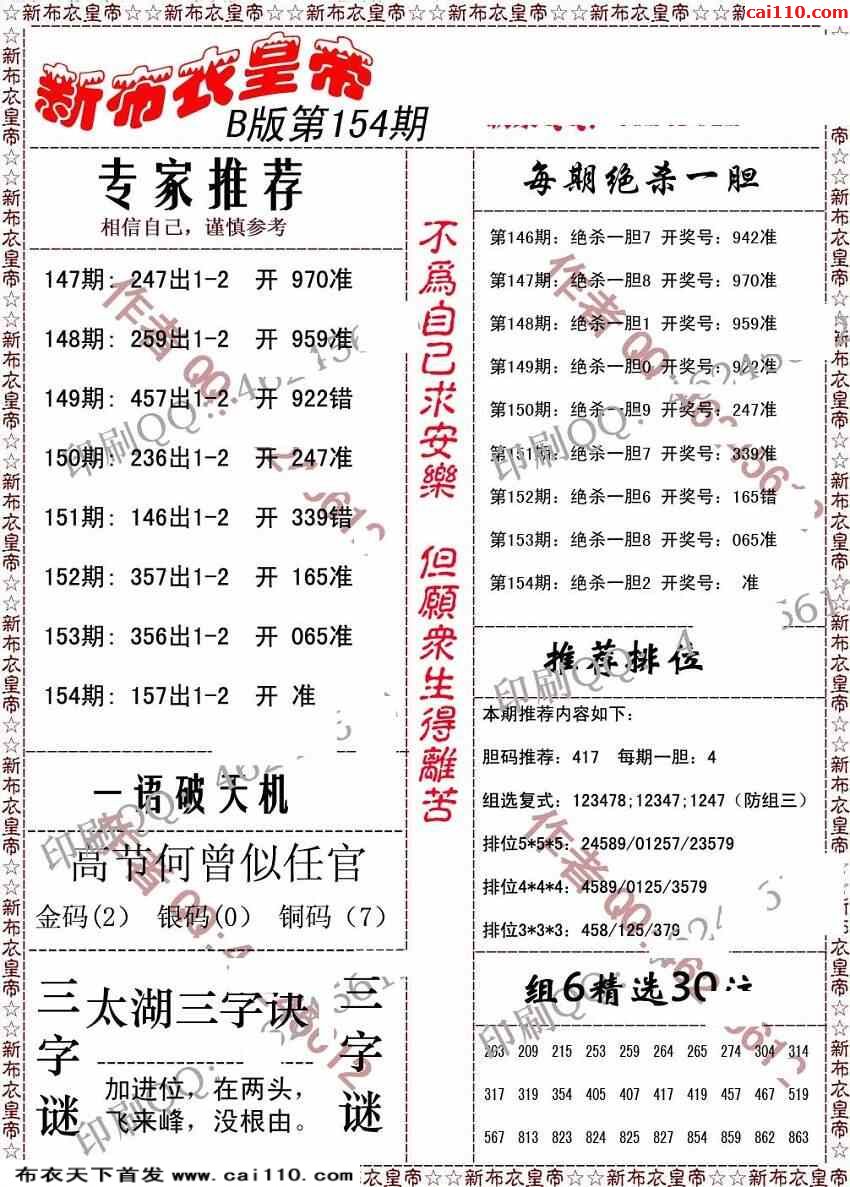 ☆☆新布衣皇帝☆☆新布衣皇帝☆☆新布衣皇帝☆☆新布衣皇帝☆☆新布衣皇帝☆☆新
cai110.com
新布衣皇帝
B版第154期
专家推荐
相信自己，谨慎参考
147期: 247出1-2 开 970准
148期: 259出1-2 开 959准
149期: 457出1-2 开 922错
150期: 236出1-2 开 247准
151期: 146出1-2 开 339错
152期: 357出1-2 开 165准
153期: 356出1-2 开 065准
154期: 157出1-2 开 准
一语破天机
高节何曾似任官
金码(2) 银码(0) 铜码（7）
三字谜
太湖三字诀
加进位，在两头，
飞来峰，没根由。
三字谜
不為自己求安樂 但願衆生得離苦
每期绝杀一胆
第146期: 绝杀一胆7 开奖号: 942准
第147期: 绝杀一胆8 开奖号: 970准
第148期: 绝杀一胆1 开奖号: 959准
第149期: 绝杀一胆0 开奖号: 922准
第150期: 绝杀一胆9 开奖号: 247准
第151期: 绝杀一胆7 开奖号: 339准
第152期: 绝杀一胆6 开奖号: 165错
第153期: 绝杀一胆8 开奖号: 065准
第154期: 绝杀一胆2 开奖号: 准
推荐排位
本期推荐内容如下:
胆码推荐: 417 每期一胆: 4
组选复式: 123478;12347;1247（防组三）
排位5*5*5: 24589/01257/23579
排位4*4*4: 4589/0125/3579
排位3*3*3: 458/125/379
组6精选30注
203 209 215 253 259 264 265 274 304 314
317 319 354 405 407 417 419 457 467 519
567 813 823 824 827 854 859 862 863
布衣天下首发 www.cai110.com
衣皇帝☆☆新布衣皇帝☆☆新布衣皇帝☆☆新布衣皇帝☆☆